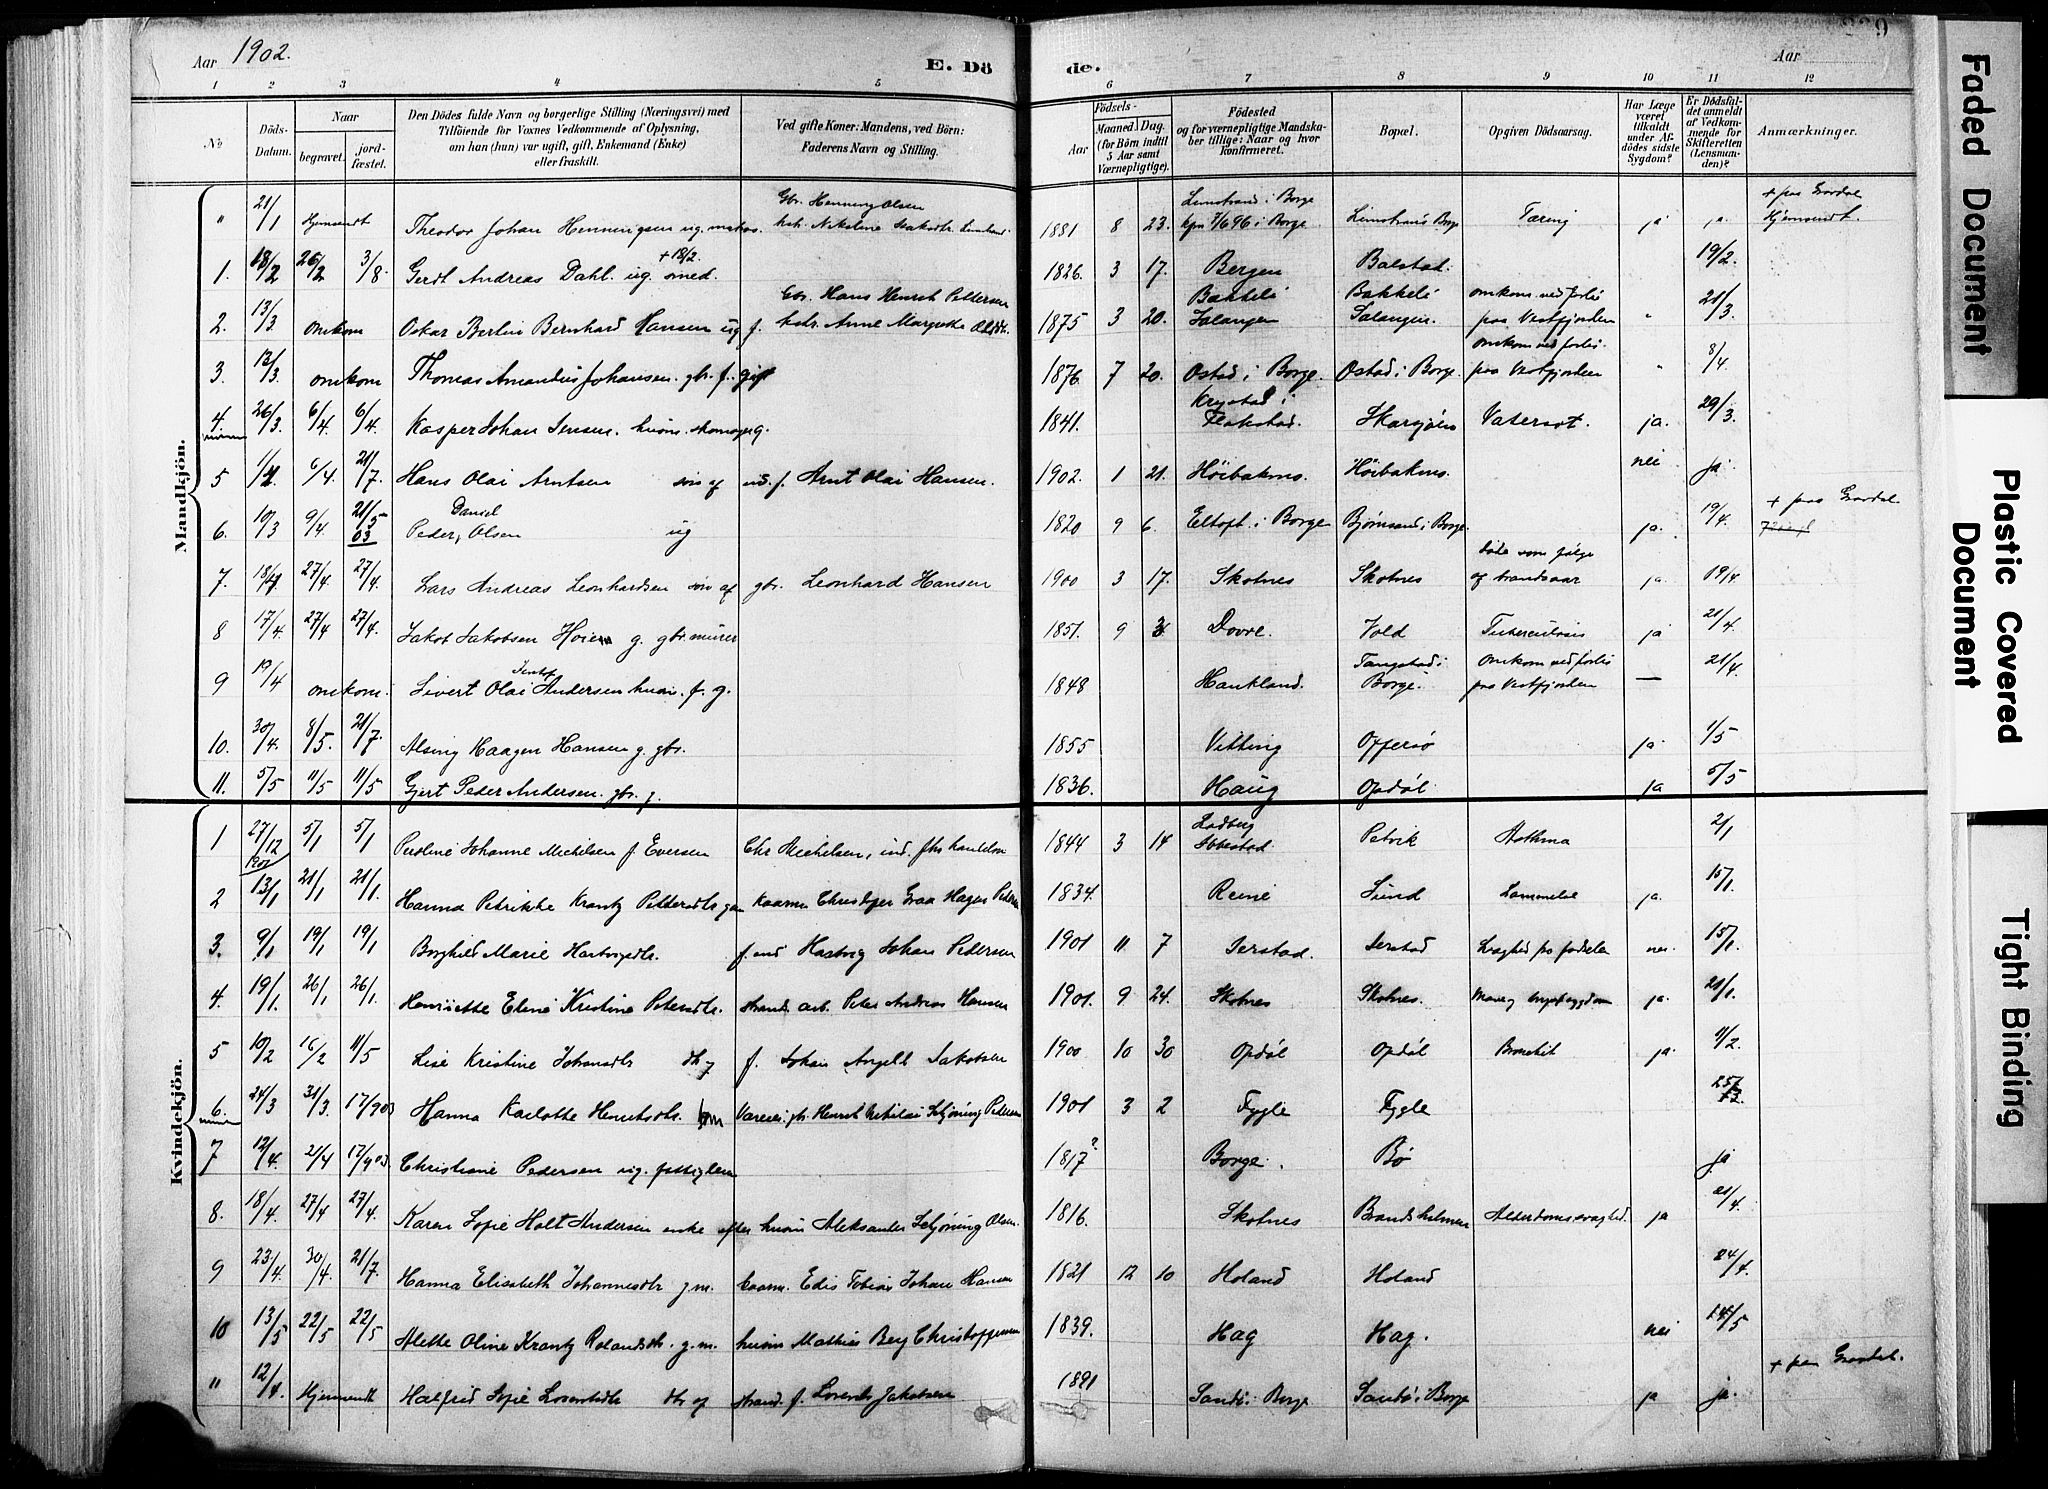 Aar 1902.
E. Dö
de.
Aar
1 2 3 4 5 6 7 8 9 10 11 12
№
Döds-Datum.
Naar
begravet.
jord-fæstet.
Den Dödes fulde Navn og borgerlige Stilling (Næringsvei) med
Tilföiende for Voxnes Vedkommende af Oplysning,
om han (hun) var ugift, gift, Enkemand (Enke)
eller fraskilt.
Ved gifte Koner: Mandens, ved Börn:
Faderens Navn og Stilling.
Födsels-
Aar
Maaned. Dag.
(for Börn indtil
5 Aar samt
Værnepligtige).
Födested
og for værnepligtige Mandska-
ber tillige: Naar og hvor
konfirmeret.
Bopæl.
Opgiven Dödsaarsag.
Har Læge
været
tilkaldt
under Af-
dödes sidste
Sygdom?
Er Dödsfal-
det anmeldt
af Vedkom-
mende for
Skifteretten
(Lensman-
den)?
Anmærkninger.
Mandkjön.
" 21/1 Hjemsendt Theodor Johan Henningsen ug. matros. Gbr. Henning Olsen hstr. Nikoline 1881 8 23. Limstrand i Borge kfm 7/6 96 i Borge Limstrand Borge Tæring ja ja. + paa Gravdal Hjemsendt.
1. 18/2 26/2 3/8. Gerdt Andreas Dahl. ug. smed. +18/2. 1826. 3 17. Bergen Balstad. 19/2.
2. 13/3 omkom Oskar Bertin Bernhard Hansen ug f. Gbr. Hans Henrik Pettersen hstr. Anne Margrethe Olsdtr. 1875 3 20. Bakkeli Salangen Bakkeli Salangen. omkom ved forlis paa Vestfjorden " 21/3.
3. 13/3. omkom Thomas Amandus Johansen. gbr. f. gift 1876 7 20. Ostad i Borge. Ostad i Borge. omkom ved forlis. paa Vestfjorden " 8/4.
4. 26/3. 6/4. 6/4. Kasper Johan Jensen. husm. skomager g. 1841. Krystad i Flakstad. Skarsjøen Vatersot. ja. 29/3.
5 1/4 6/4. 21/7. Hans Olai Arntsen søn af ind. f. Arnt Olai Hansen. 1902. 1 21. Høibakmo. Høibakmo. nei ja.
6. 10/3 9/4. 21/5 03 Peder Daniel Olsen ug 1820 9 6. Eltoft. i Borge Bjørnsand i Borge. ja. 19/4. + paa Gravdal.
7. 18/4 27/4. 27/4. Lars Andreas Leonhardsen søn af gbr. Leonhard Hansen 1900 3 17. Skotnes Skotnes døde som følge af brandsaar ja. 19/4
8 17/4. 27/4 27/4. Jakob Jakobsen Hoien g. gbr. murer 1851. 9 3 Dovre. Vold Tuberculosis ja 21/4.
9 19/4 omkom. Sivert Olai Andersen husm. f. g. 1848 Haukland. Tangstad i Borge. Omkom ved forlis paa Vestfjorden — 21/4.
10. 30/4. 8/5. 21/7. Alsing Haagen Hansen g. gbr. 1855 Vitting Offersø ja. 1/5
11. 5/5 11/5 11/5 Gjert Peder Andersen. gbr. g. 1836. Haug Opdøl ja 5/5
Kvindekjön.
1 27/12 1901 5/1 5/1 Pauline Johanne Michelsen f. Eversen Chr Michelsen, ind. 1844 3 14 Ibbestad. Petvik Asthma 2/1
2 13/1 21/1 21/1. Hanna Petrikke Krantz Pettersdtr gm kaarm. Christoffer Graa Hagen Pedersen 1834. Reine Sund Lammelse ja. 15/1.
3. 9/1 19/1 19/1 Borghild Marie Hartvigsdtr. f. ind Hartvig Johan Pedersen 1901 11 7 Jerstad. Jerstad Svaghed fra fødselen nei. 15/1.
4. 19/1. 26/1 26/1. Henriette Eline Kristine Petersdtr. strand. arb. Peter Andreas Hansen 1901. 9 24. Skotnes Skotnes. ja. 21/1.
5 10/2 16/2 11/5 Lise Kristine Johansdtr dtr af f. Johan Angell Jakobsen 1900 10 30 Opdøl Opdøl Bronchit ja. 11/2.
6. 24/3 31/3. 17/9 03 Hanna Karlotte Henriksdtr. Henrik Nikolai Schjøning Pedersen 1901 3 2 Fygle Fygle 25/3.
7 12/4. 21/4 17/9 03. Christiane Pedersen ug. fattiglem 1817? Borge. Bø ja
8. 18/4. 27/4 27/4. Karen Sofie Holt Andersen enke efter husm Aleksander Schjøning Olsen. 1816. Skotnes Brandsholmen Alderdomssvaghed. ja 21/4.
9 23/4. 30/4. 21/7. Hanna Elisabeth Johannesdtr g.m. kaarm. Edis Tobias Johan Hansen 1821 12 10 Holand Holand 24/4.
10 13/5 22/5 22/5 Alette Oline Krantz Rolandsdtr. g.m. husm Mathias Berg Christoffersen 1839. Hag Hag. nei 14/5
" 12/4. Hjemsendt Halfrid Sofie Lorentsdtr dtr af strand. f. Lorents Jakobsen 1891 Sandø i Borge Sandø i Borge ja ja. + paa Gravdal.
Faded Document
Plastic Covered Document
Tight Binding